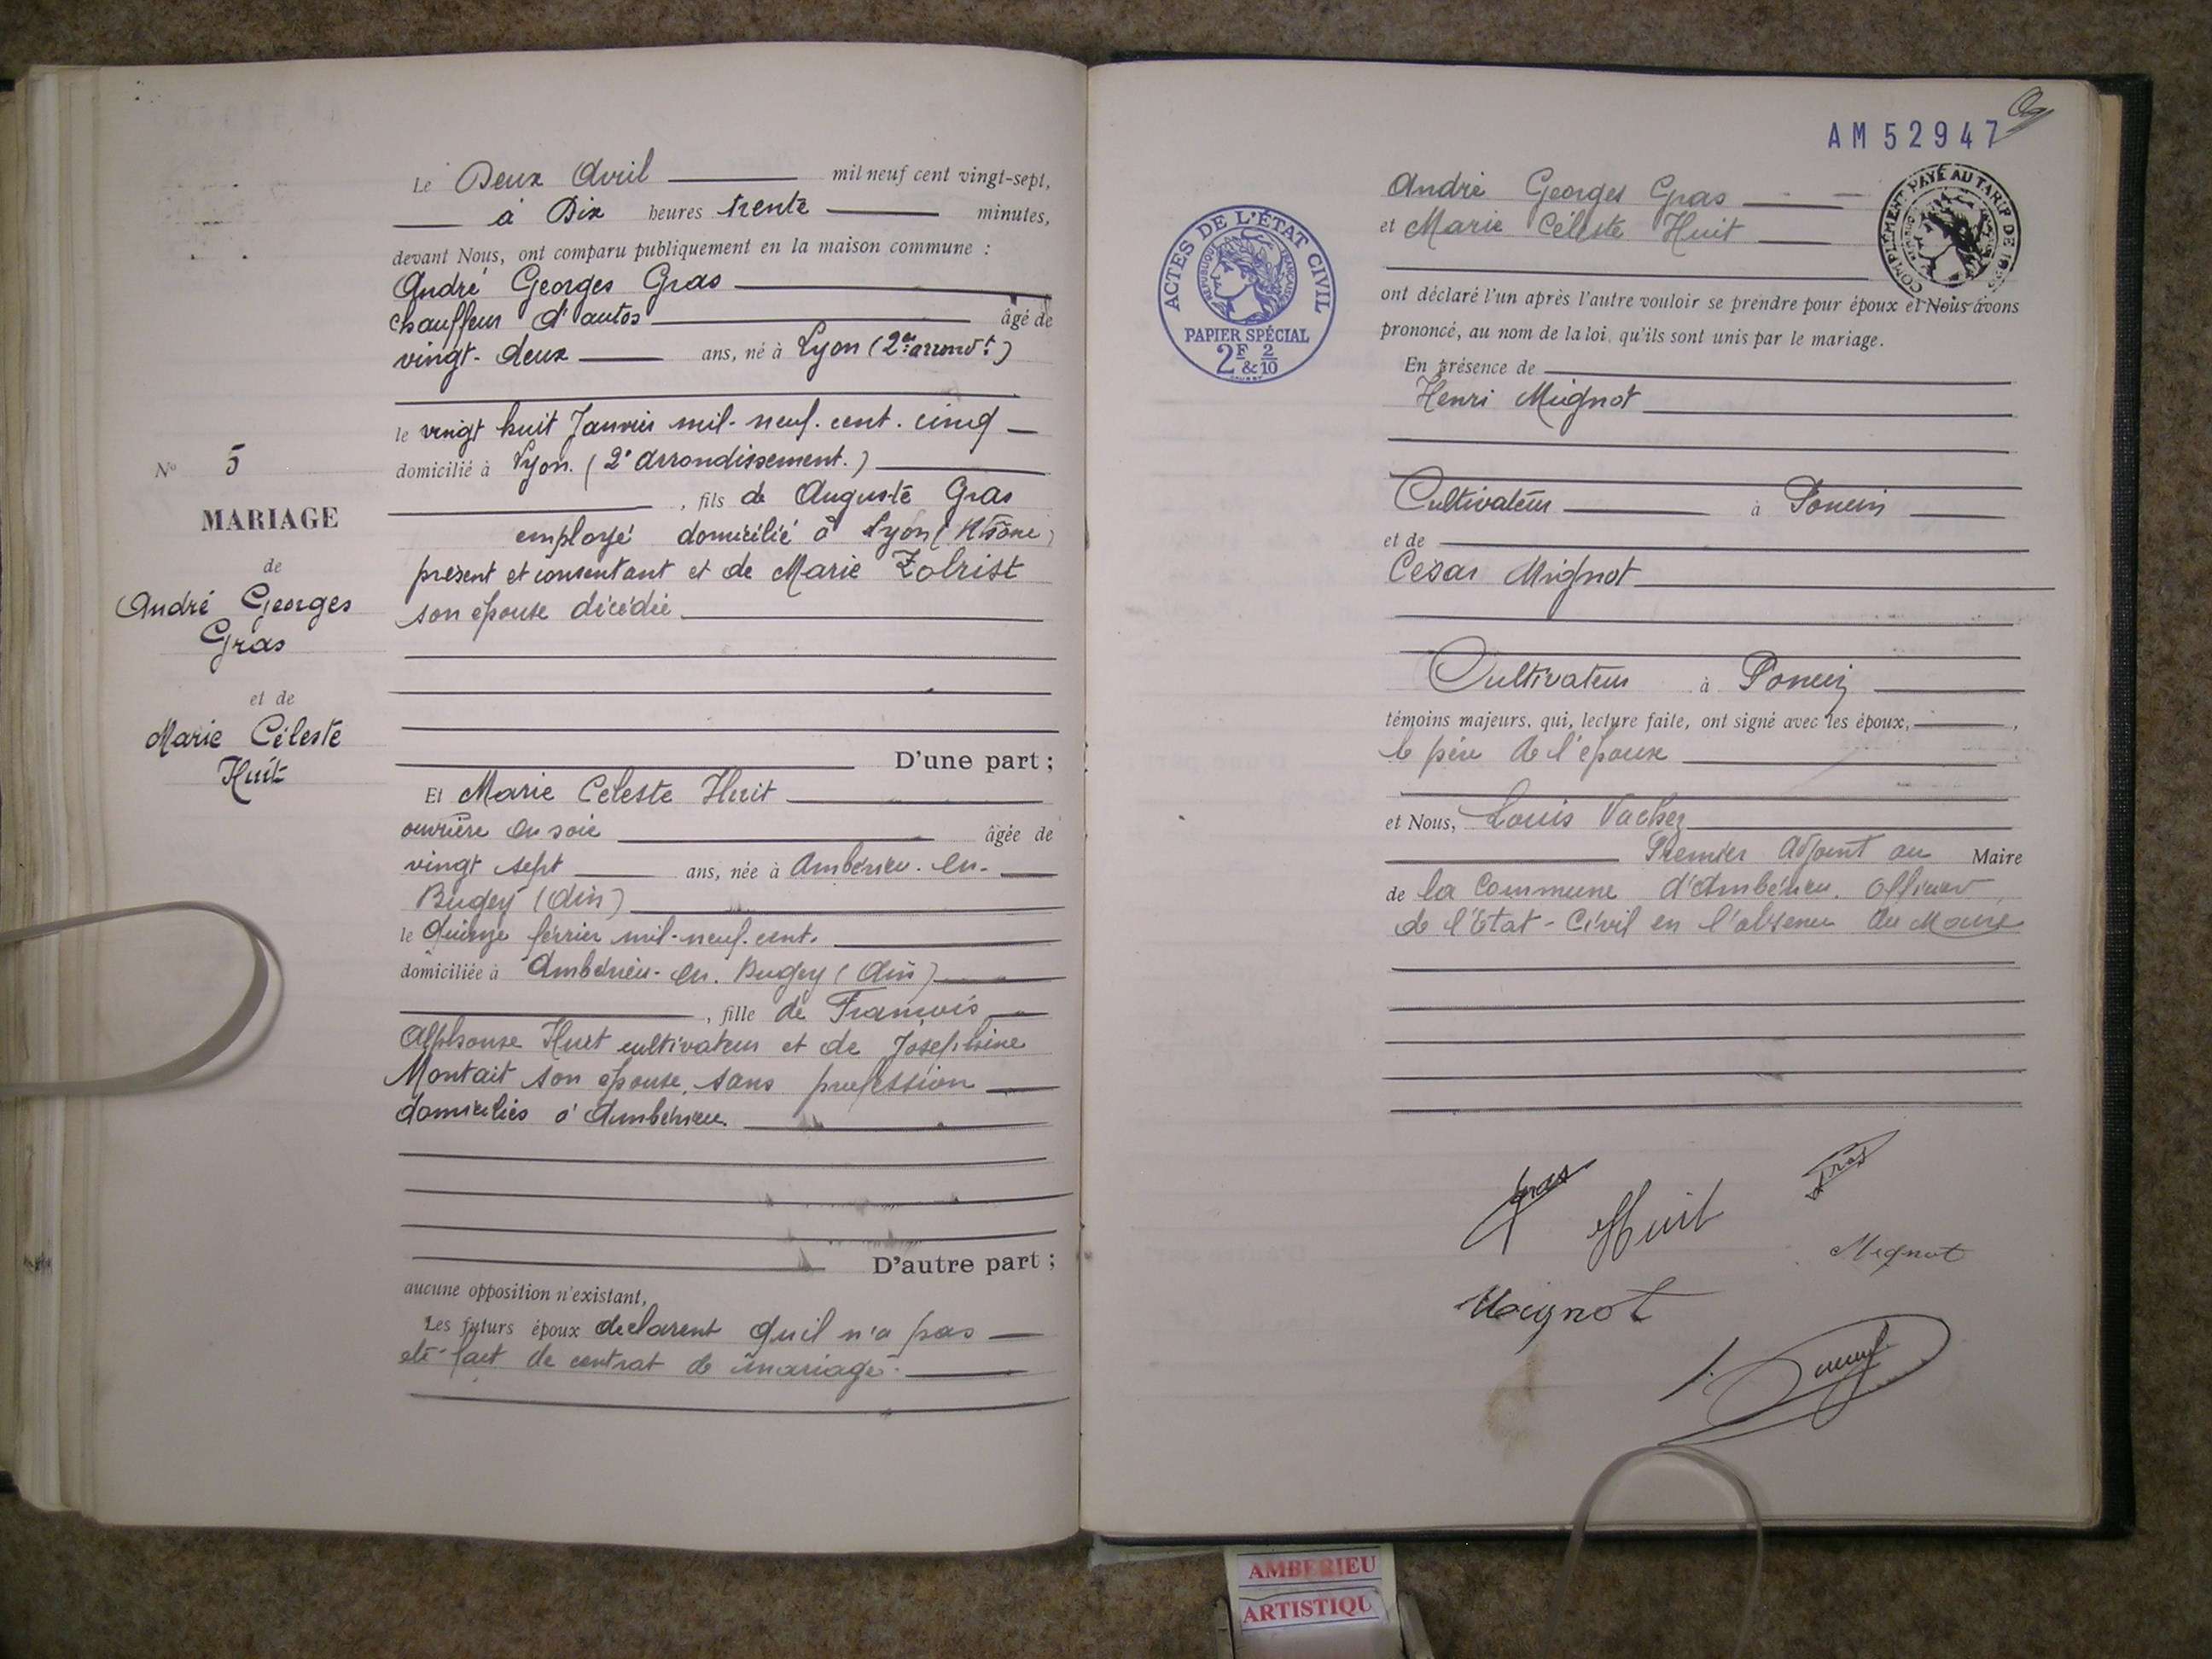 Le Deux Avril mil neuf cent vingt-sept,
à Dix heures trente minutes,
devant Nous, ont comparu publiquement en la maison commune :
André Georges Gras
chauffeur d'autos âgé de
vingt-deux ans, né à Lyon (2e arrondt)
le vingt huit Janvier mil-neuf-cent-cinq
domicilié à Lyon. (2e arrondissement.)
, fils de Auguste Gras
employé domicilié à Lyon (Rhône)
présent et consentant et de Marie Zolrist
son épouse décédée
D'une part ;
Nº 5
MARIAGE
de
André Georges
Gras
et de
Marie Céleste
Huit
Et Marie Céleste Huit
ouvrière en soie âgée de
vingt sept ans, née à Ambérieu-en-
Bugey (Ain)
le quinze février mil-neuf-cent.
domiciliée à Ambérieu-en-Bugey (Ain)
, fille de François
Alphonse Huit cultivateur et de Joséphine
Montait son épouse, sans profession
domiciliés à Ambérieu.
D'autre part ;
aucune opposition n'existant,
Les futurs époux déclarent qu'il n'a pas
été fait de contrat de mariage.
AM 52947
ACTES DE L'ÉTAT CIVIL
RÉPUBLIQUE FRANÇAISE
PAPIER SPÉCIAL
2F & 2/10
COMPLÉMENT PAYÉ AU TARIF DE
André Georges Gras
et Marie Céleste Huit
ont déclaré l'un après l'autre vouloir se prendre pour époux et Nous avons
prononcé, au nom de la loi, qu'ils sont unis par le mariage.
En présence de
Henri Mignot
Cultivateur à Poncin
et de
César Mignot
Cultivateur à Poncin
témoins majeurs, qui, lecture faite, ont signé avec les époux,
le père de l'époux
et Nous, Louis Vacher
Premier Adjoint au Maire
de la Commune d'Ambérieu. Officier
de l'Etat-Civil en l'absence du Maire
Gras
Huit
Gras
Mignot
Mignot
AMBERIEU
ARTISTIQU